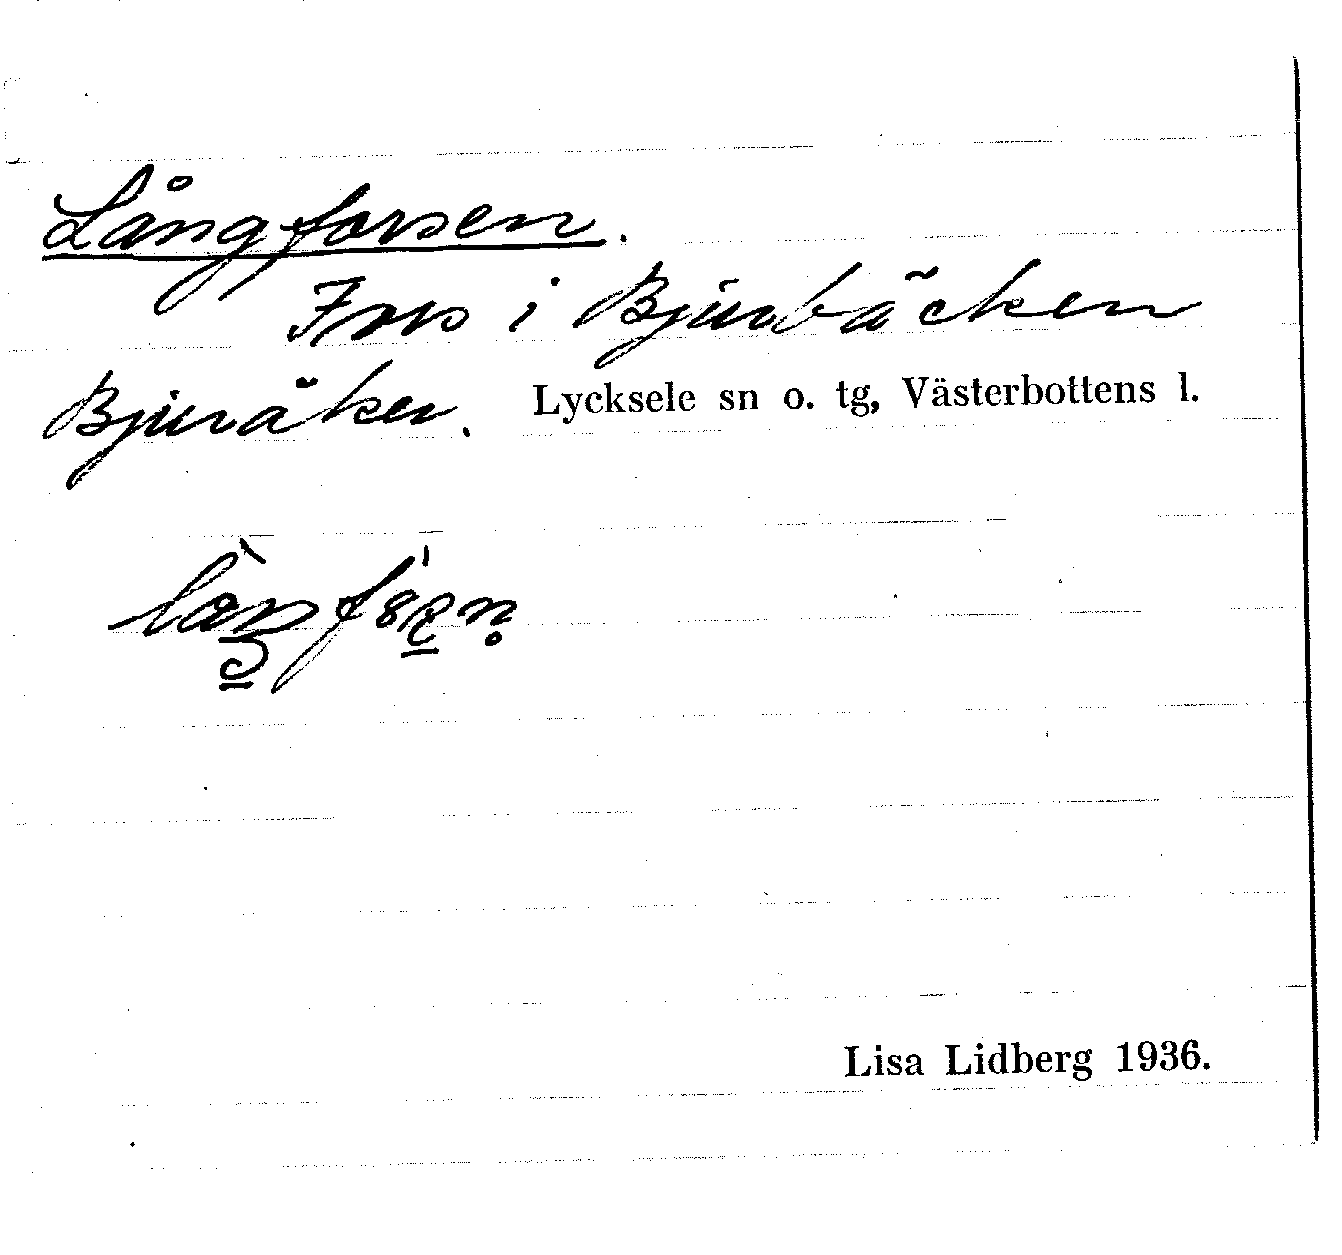 Långforsen.
Fors i Bjurbäcken
Bjuråker. Lycksele sn o. tg, Västerbottens l.
Lisa Lidberg 1936.